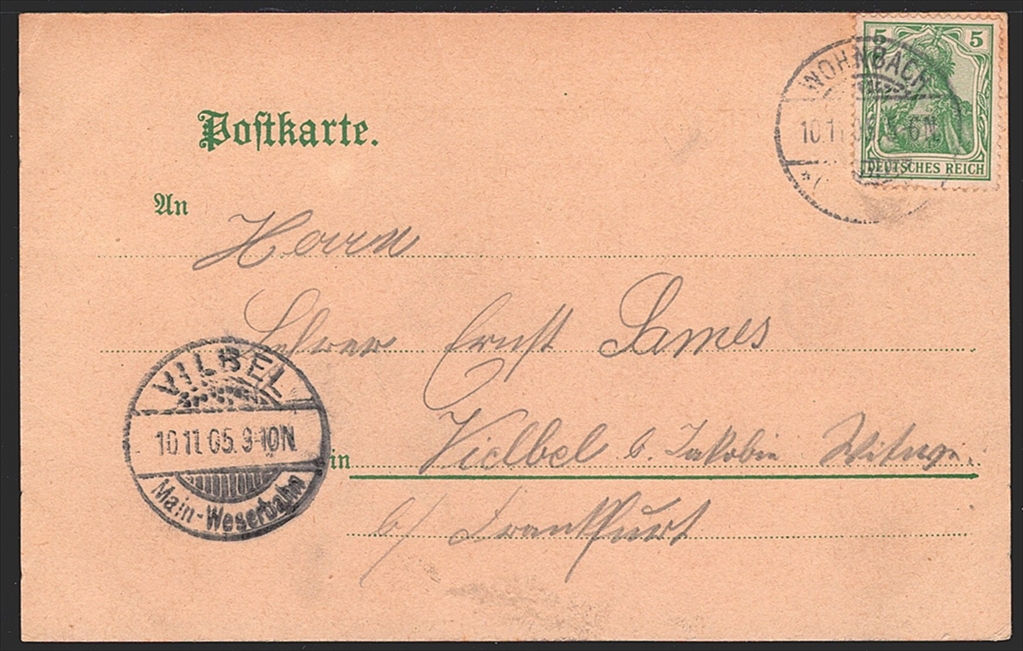 5 5
DEUTSCHES REICH
WOHNBACH
10.11.05. 5-6N.
Postkarte.
An
Herrn
Lehrer Ernst James
VILBEL
10.11.05. 9-10N
Main-Weserbahn
in Vielbel b. Jakobie
b/ Frankfurt